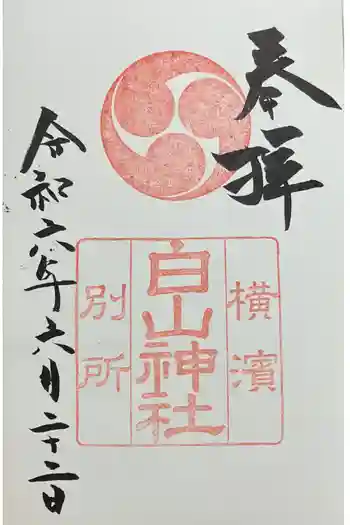 奉拝
横濱
白山神社
別所
令和六年六月二十二日